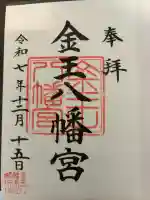 奉拝
金王八幡宮
令和七年十二月十五日